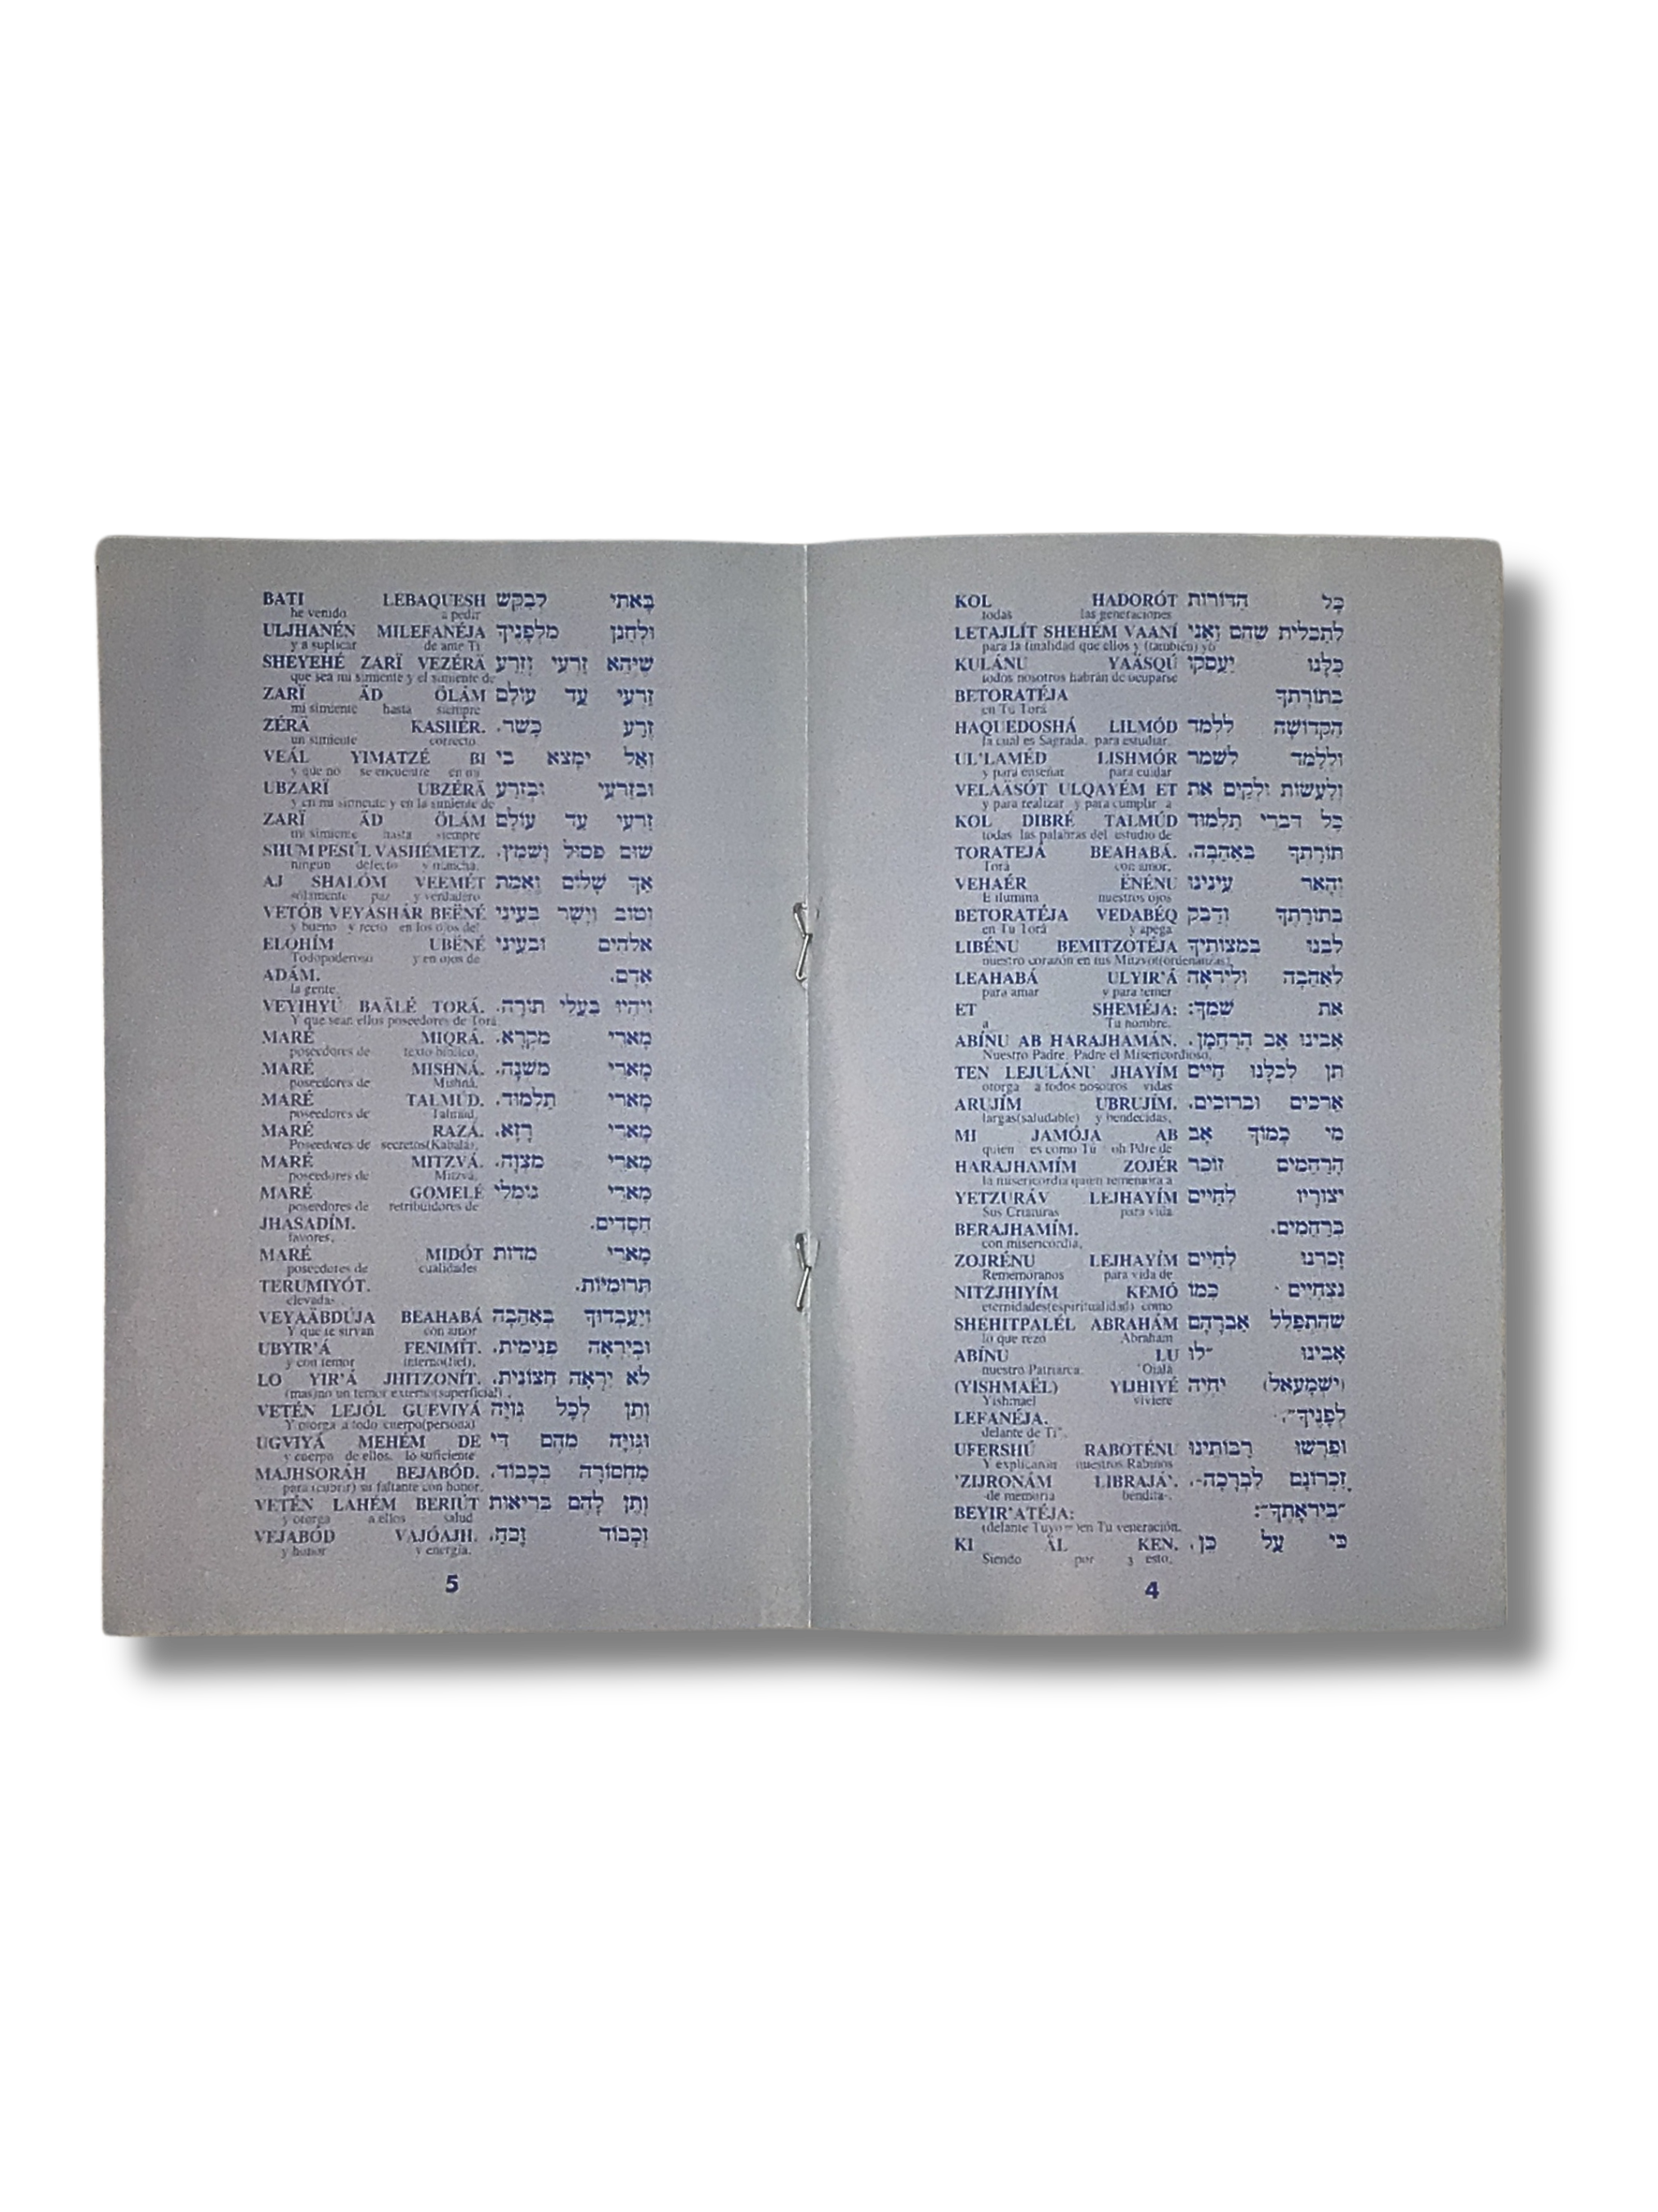 KOL HADORÓT כָּל הַדּוֹרוֹת
todas las generaciones
LETAJLÍT SHEHÉM VAANÍ לְתַכְלִית שֶׁהֵם וַאֲנִי
para la finalidad que ellos y (también) yo
KULÁNU YAÄSQÚ כֻּלָּנוּ יַעַסְקוּ
todos nosotros habrán de ocuparse
BETORATÉJA בְּתוֹרָתְךָ
en Tu Torá
HAQUEDOSHÁ LILMÓD הַקְּדוֹשָׁה לִלְמֹד
la cual es Sagrada, para estudiar,
UL'LAMÉD LISHMÓR וּלְלַמֵּד לִשְׁמֹר
y para enseñar para cuidar
VELAÄSÓT ULQAYÉM ET וְלַעֲשׂוֹת וּלְקַיֵּם אֶת
y para realizar y para cumplir a
KOL DIBRÉ TALMÚD כָּל דִּבְרֵי תַלְמוּד
todas las palabras del estudio de
TORATEJÁ BEAHABÁ. תּוֹרָתְךָ בְּאַהֲבָה.
Torá con amor,
VEHAÉR ËNÉNU וְהָאֵר עֵינֵינוּ
E ilumina nuestros ojos
BETORATÉJA VEDABÉQ בְּתוֹרָתְךָ וְדַבֵּק
en Tu Torá y apega
LIBÉNU BEMITZOTÉJA לִבֵּנוּ בְּמִצְוֹתֶיךָ
nuestro corazón en tus Mitzvot(ordenanzas),
LEAHABÁ ULYIR'Á לְאַהֲבָה וּלְיִרְאָה
para amar y para temer
ET SHEMÉJA: אֶת שְׁמֶךָ:
a Tu nombre.
ABÍNU AB HARAJHAMÁN. אָבִינוּ אָב הָרַחֲמָן.
Nuestro Padre, Padre el Misericordioso,
TEN LEJULÁNU JHAYÍM תֵּן לְכֻלָּנוּ חַיִּים
otorga a todos nosotros vidas
ARUJÍM UBRUJÍM. אֲרֻכִּים וּבְרוּכִים.
largas(saludable) y bendecidas,
MI JAMÓJA AB מִי כָמוֹךָ אָב
quien es como Tú oh Pdre de
HARAJHAMÍM ZOJÉR הָרַחֲמִים זוֹכֵר
la misericordia quien rememora a
YETZURÁV LEJHAYÍM יְצוּרָיו לְחַיִּים
Sus Criaturas para vida
BERAJHAMÍM. בְּרַחֲמִים.
con misericordia,
ZOJRÉNU LEJHAYÍM זָכְרֵנוּ לְחַיִּים
Rememoranos para vida de
NITZJHIYÍM KEMÓ נִצְחִיִּים כְּמוֹ
eternidades(espiritualidad) como
SHEHITPALÉL ABRAHÁM שֶׁהִתְפַּלֵּל אַבְרָהָם
lo que rezó Abraham
ABÍNU LU אָבִינוּ "לוּ
nuestro Patriarca. "Ojalá
(YISHMAËL) YIJHIYÉ (יִשְׁמָעֵאל) יִחְיֶה
Yishmael viviere
LEFANÉJA. לְפָנֶיךָ".
delante de Ti",
UFERSHÚ RABOTÉNU וּפֵרְשׁוּ רַבּוֹתֵינוּ
Y explicaron nuestros Rabinos
'ZIJRONÁM LIBRAJÁ'. זִכְרוֹנָם לִבְרָכָה-.
-de memoria bendita-,
BEYIR'ATÉJA: "בְּיִרְאָתְךָ":
(delante Tuyo=)en Tu veneración.
KI ÄL KEN. כִּי עַל כֵּן.
Siendo por esto,
4
BATI LEBAQUESH בָּאתִי לְבַקֵּשׁ
he venido a pedir
ULJHANÉN MILEFANÉJA וּלְחַנֵּן מִלְּפָנֶיךָ
y a suplicar de ante Ti
SHEYEHÉ ZARÏ VEZÉRÄ שֶׁיְּהֵא זַרְעִי וְזֶרַע
que sea mi simiente y el simiente de
ZARÏ ÄD ÖLÁM זַרְעִי עַד עוֹלָם
mi simiente hasta siempre
ZÉRÄ KASHÉR. זֶרַע כָּשֵׁר.
un simiente correcto
VEÁL YIMATZÉ BI וְאַל יִמָּצֵא בִי
y que no se encuentre en mi
UBZARÏ UBZÉRÄ וּבְזַרְעִי וּבְזֶרַע
y en mi simiente y en la simiente de
ZARÏ ÄD ÖLÁM זַרְעִי עַד עוֹלָם
mi simiente hasta siempre
SHUM PESÚL VASHÉMETZ. שׁוּם פְּסוּל וָשֶׁמֶץ.
ningún defecto y mancha,
AJ SHALÓM VEEMÉT אַךְ שָׁלוֹם וֶאֱמֶת
solamente paz y verdadero
VETÓB VEYASHÁR BEËNÉ וְטוֹב וְיָשָׁר בְּעֵינֵי
y bueno y recto en los ojos del
ELOHÍM UBËNÉ אֱלֹהִים וּבְעֵינֵי
Todopoderoso y en ojos de
ADÁM. אָדָם.
la gente,
VEYIHYÚ BAÄLÉ TORÁ. וְיִהְיוּ בַּעֲלֵי תוֹרָה.
Y que sean ellos poseedores de Torá
MARÉ MIQRÁ. מָארֵי מִקְרָא.
poseedores de texto bíblico,
MARÉ MISHNÁ. מָארֵי מִשְׁנָה.
poseedores de Mishná,
MARÉ TALMÚD. מָארֵי תַלְמוּד.
poseedores de Talmud,
MARÉ RAZÁ. מָארֵי רָזָא.
Poseedores de secretos(Kabalá),
MARÉ MITZVÁ. מָארֵי מִצְוָה.
poseedores de Mitzvá,
MARÉ GOMELÉ מָארֵי גּוֹמְלֵי
poseedores de retribuidores de
JHASADÍM. חֲסָדִים.
favores,
MARÉ MIDÓT מָארֵי מִדּוֹת
poseedores de cualidades
TERUMIYÓT. תְּרוּמִיּוֹת.
elevadas
VEYAÄBDÚJA BEAHABÁ וְיַעַבְדוּךָ בְּאַהֲבָה
Y que te sirvan con amor
UBYIR'Á FENIMÍT. וּבְיִרְאָה פְּנִימִית.
y con temor interno(fiel),
LO YIR'Á JHITZONÍT. לֹא יִרְאָה חִצוֹנִית.
(mas)no un temor externo(superficial),
VETÉN LEJÓL GUEVIYÁ וְתֵן לְכָל גְּוִיָּה
Y otorga a todo cuerpo(persona)
UGVIYÁ MEHÉM DE וּגְוִיָּה מֵהֶם דֵּי
y cuerpo de ellos, lo suficiente
MAJHSORÁH BEJABÓD. מַחְסוֹרָהּ בְּכָבוֹד.
para (cubrir) su faltante con honor,
VETÉN LAHÉM BERIÚT וְתֵן לָהֶם בְּרִיאוּת
y otorga a ellos salud
VEJABÓD VAJÓAJH. וְכָבוֹד וָכֹחַ.
y honor y energía,
5